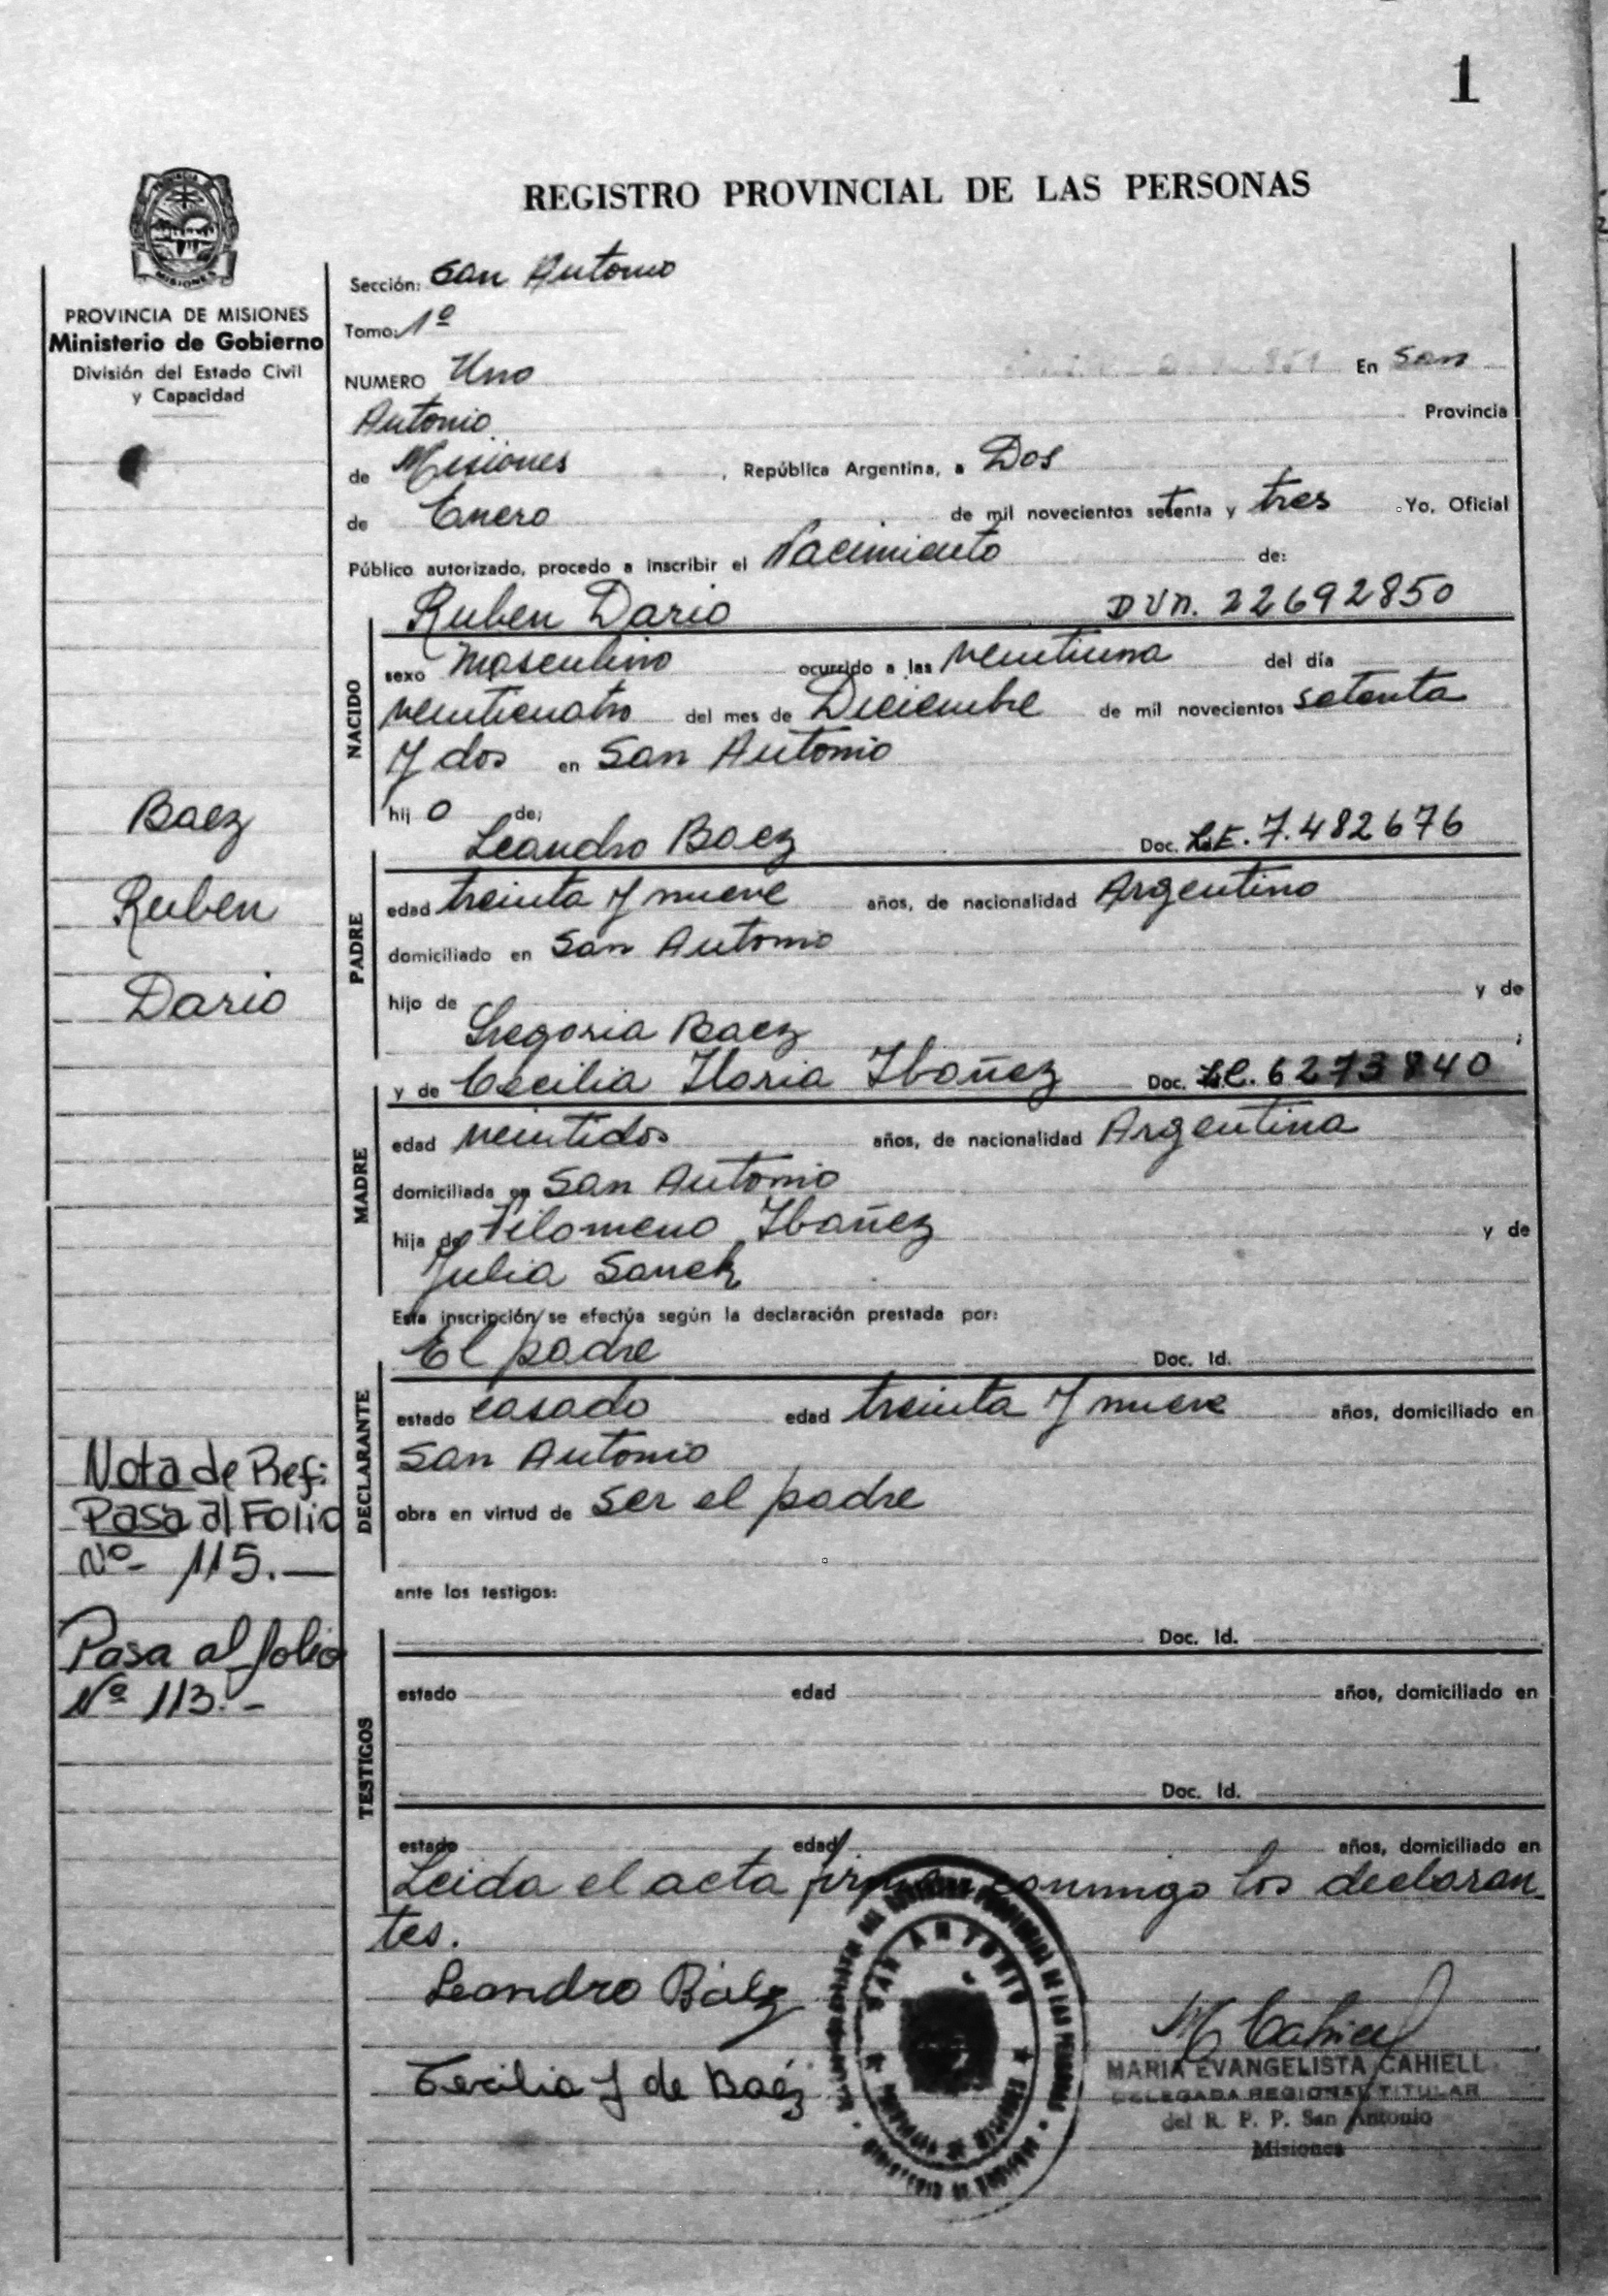 1
REGISTRO PROVINCIAL DE LAS PERSONAS
MISIONES
PROVINCIA DE MISIONES
Ministerio de Gobierno
División del Estado Civil
y Capacidad
Baez
Ruben
Dario
Nota de Ref:
Pasa al Folio
Nº- 115.—
Pasa al folio
Nº 113.-
Sección: San Antonio
Tomo: 1º
NUMERO Uno En San
Antonio Provincia
de Misiones , República Argentina, a Dos
de Enero de mil novecientos setenta y tres . Yo, Oficial
Público autorizado, procedo a inscribir el Nacimiento de:
Ruben Dario DNI. 22692850
NACIDO
sexo Masculino ocurrido a las veintiuna del día
veinticuatro del mes de Diciembre de mil novecientos setenta
y dos en San Antonio
hij o de;
Leandro Baez Doc. L.E. 7.482676
PADRE
edad treinta y nueve años, de nacionalidad Argentino
domiciliado en San Antonio
hijo de y de
Gregoria Baez ;
y de Cecilia Ibañez Doc. L.C. 6273840
MADRE
edad veintidos años, de nacionalidad Argentina
domiciliada en San Antonio
hija de Filomeno Ibañez y de
Julia
Esta inscripción se efectúa según la declaración prestada por:
El padre Doc. Id.
DECLARANTE
estado casado edad treinta y nueve años, domiciliado en
San Antonio
obra en virtud de ser el padre
ante los testigos:
Doc. Id.
TESTIGOS
estado edad años, domiciliado en
Doc. Id.
estado edad años, domiciliado en
Leida el acta firman conmigo los declaran
tes.
Leandro Báez
Cecilia I de Baéz
SAN ANTONIO
M Cahiell
MARIA EVANGELISTA CAHIELL
DELEGADA REGIONAL TITULAR
del R. P. P. San Antonio
Misiones